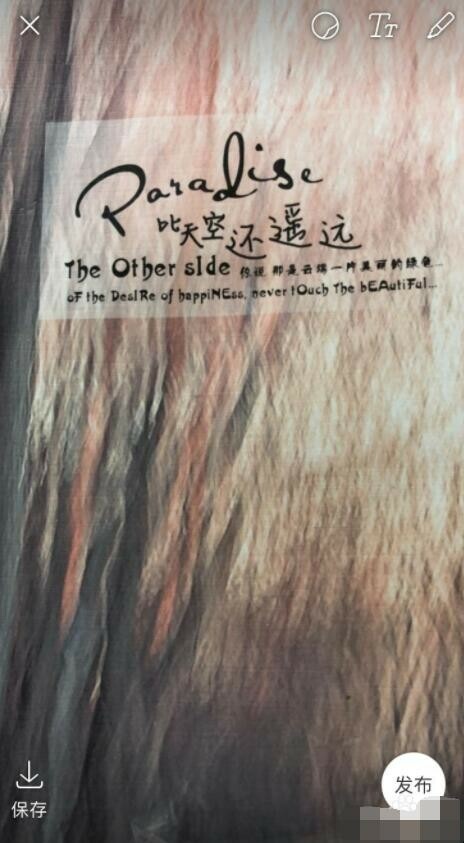 Paradise
比天空还遥远
The Other sIde 你说 那是云端一片美丽的绿色...
oF the DesIRe of happiNEss, never tOuch The bEAutiFul...
保存
发布